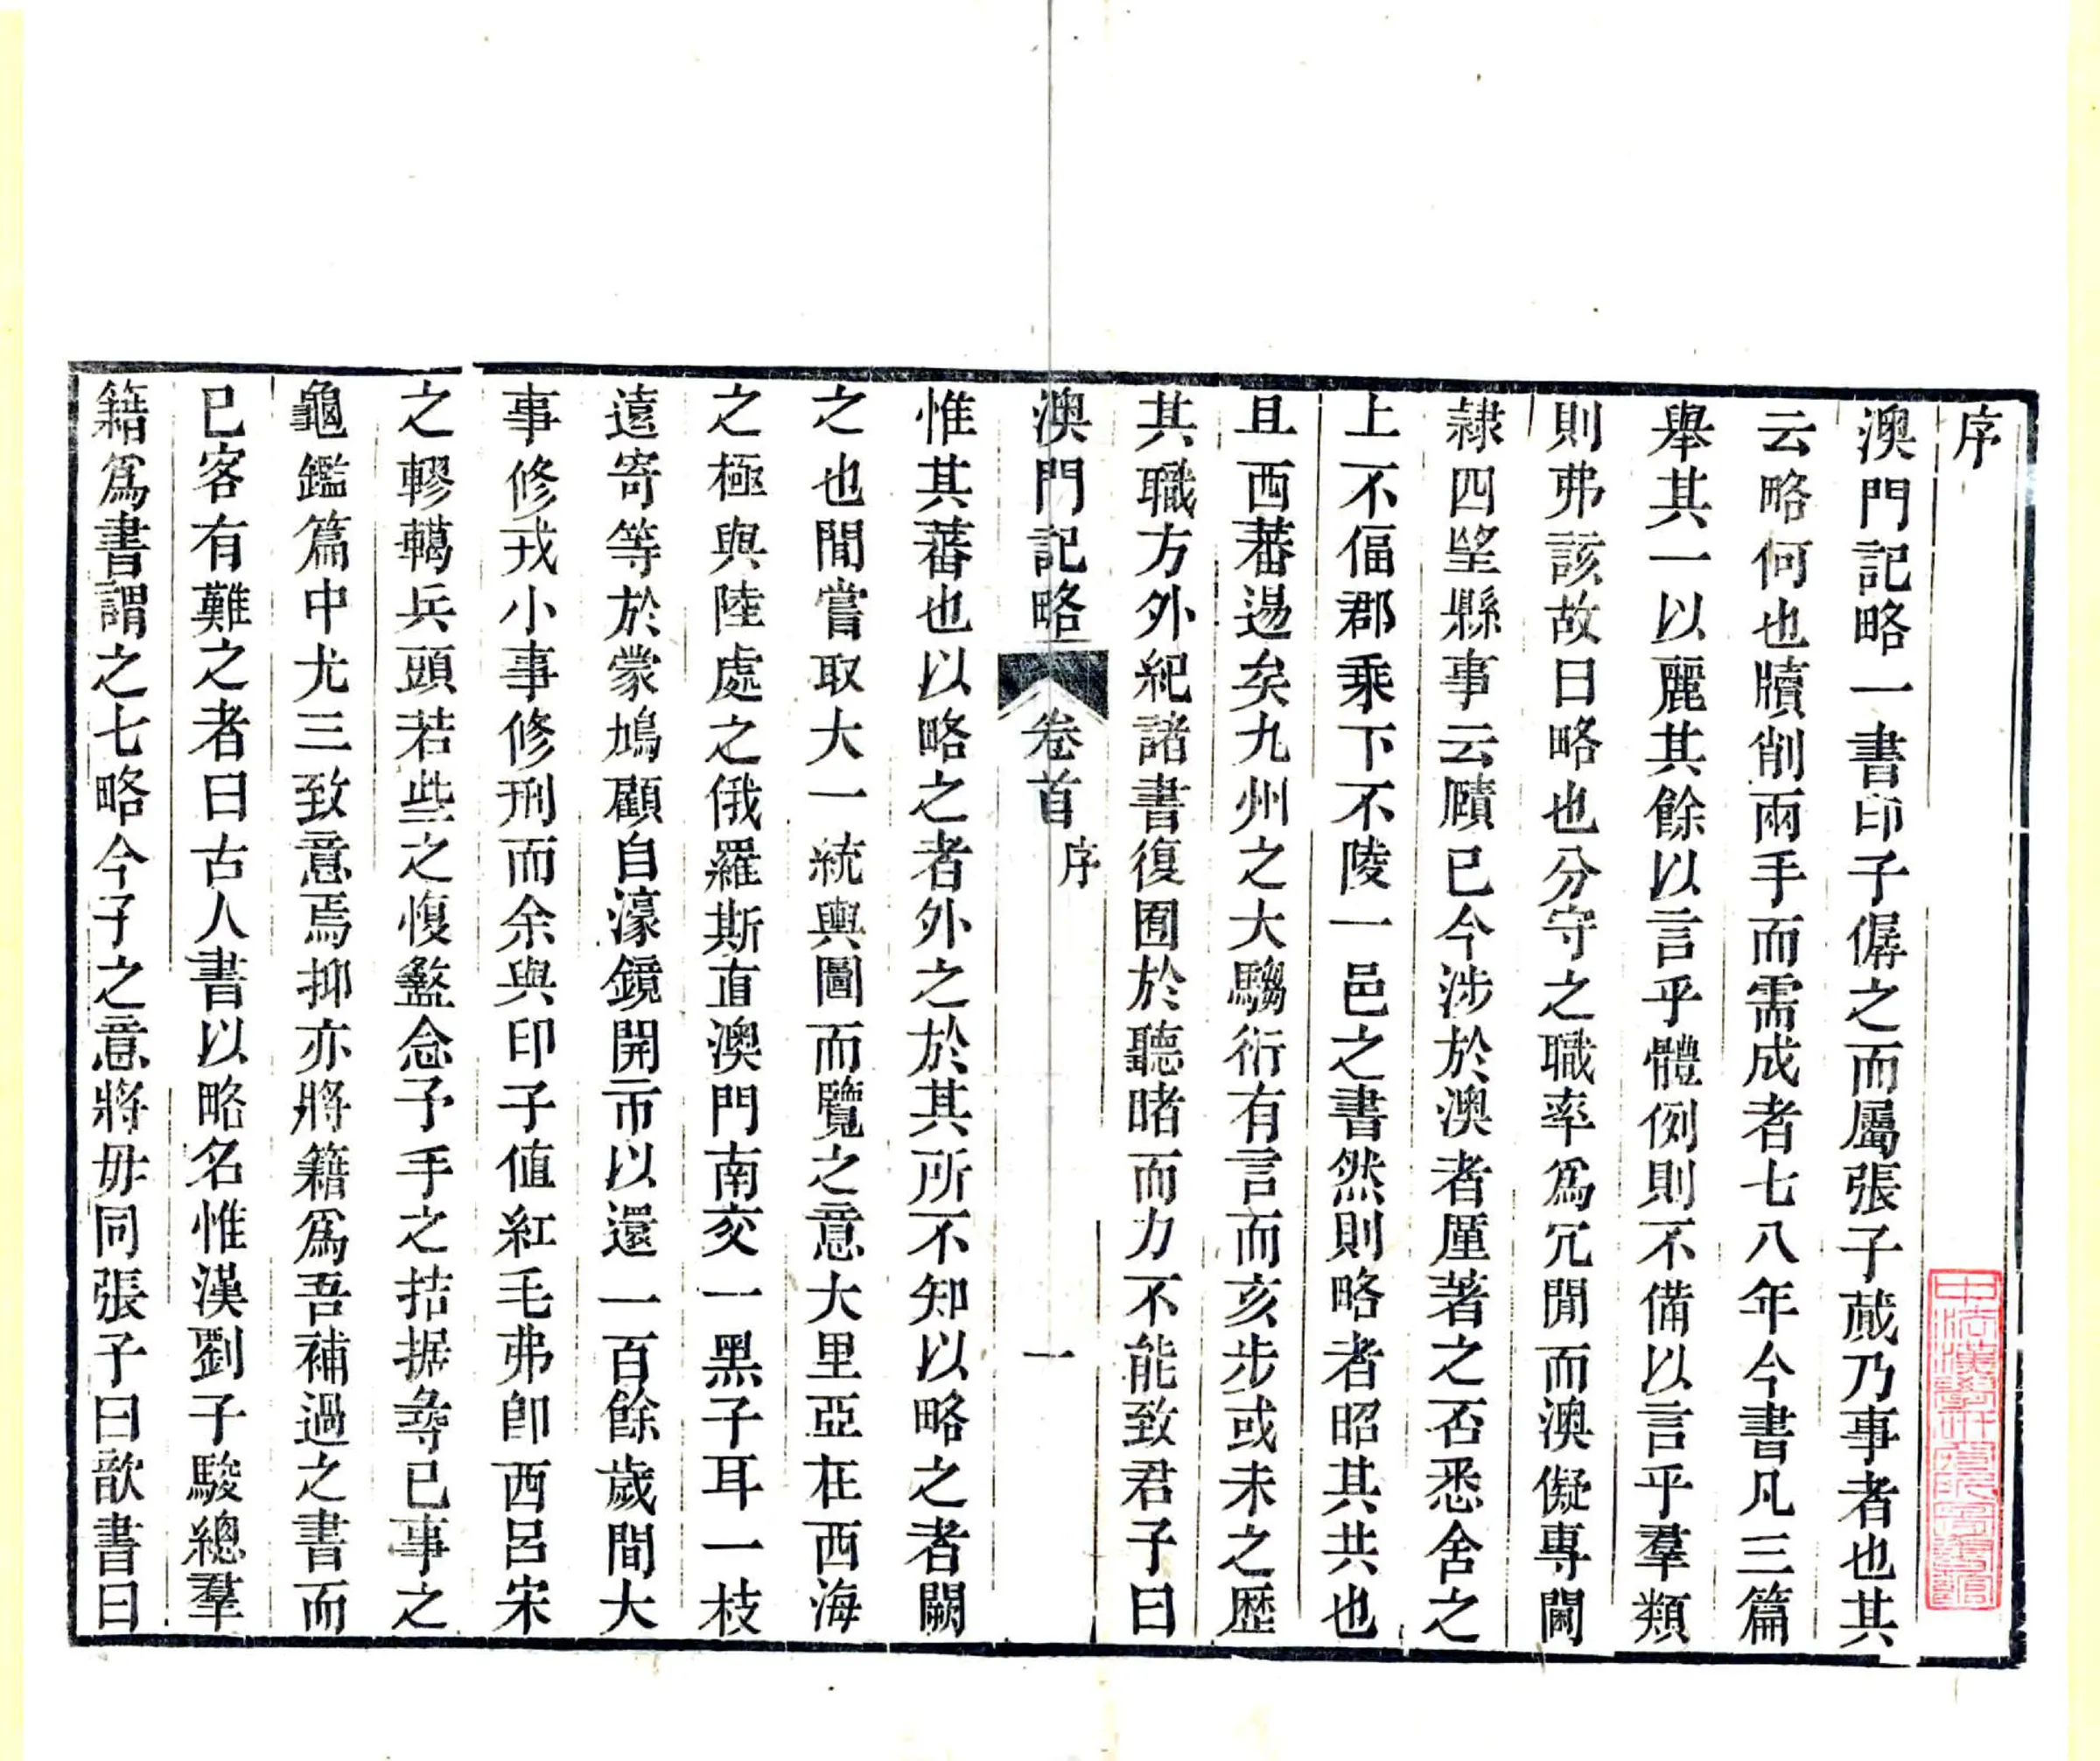 序
澳門記略一書印子僝之而屬張子蕆乃事者也其
云略何也牘削兩手而需成者七八年今書凡三篇
舉其一以麗其餘以言乎體例則不備以言乎羣類
則弗該故曰略也分守之職率爲冗閒而澳儗專閫
隷四埜縣事云賾已今涉於澳者厪著之否悉舍之
上不偪郡乘下不陵一邑之書然則略者昭其共也
且西蕃逿矣九州之大騶衍有言而亥步或未之歷
其職方外紀諸書復囿於聽睹而力不能致君子曰
澳門記略 卷首 序 一
惟其蕃也以略之者外之於其所不知以略之者闕
之也閒嘗取大一統輿圖而覽之意大里亞在西海
之極與陸處之俄羅斯直澳門南交一黑子耳一枝
遠寄等於蒙鳩顧自濠鏡開市以還一百餘歲間大
事修戎小事修刑而余與印子值紅毛弗郎西呂宋
之轇轕兵頭若些之愎盭念予手之拮据尋已事之
龜鑑篇中尤三致意焉抑亦將籍爲吾補過之書而
已客有難之者曰古人書以略名惟漢劉子駿總羣
籍爲書謂之七略今子之意將毋同張子曰歆書曰
中法漢學研究所圖書館